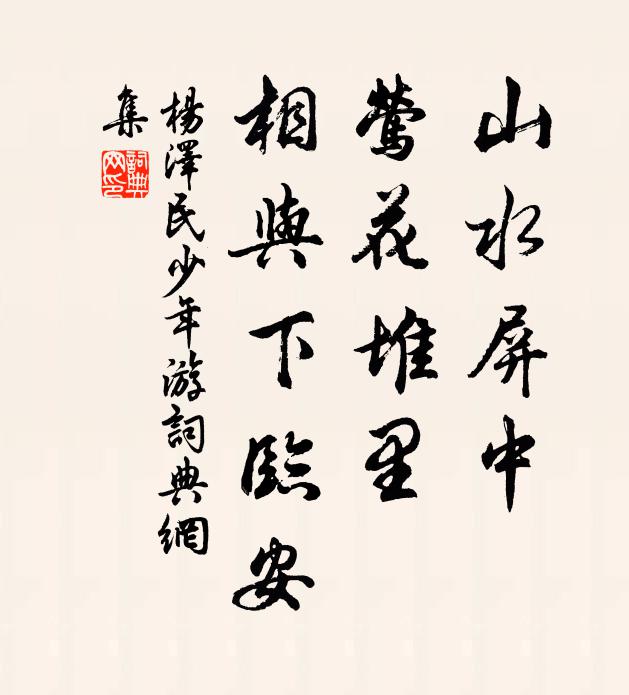 山水屏中
鶯花堆里
相與下臨安
楊澤民少年游詞典網
集
詞典
网印